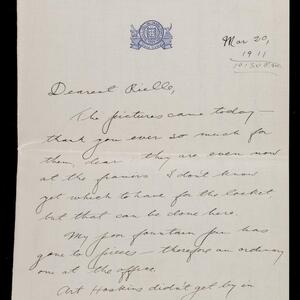 Mar 20,
1911
Dearest Rielle,
The pictures came today -
thank you ever so much for
them, dear - they are even now
at the framers. I don't know
yet which to have for the locket
but that can be done here.
My poor fountain pen has
gone to pieces - therefore an ordinary
one at the office.
Art Hoskins didn't get by in